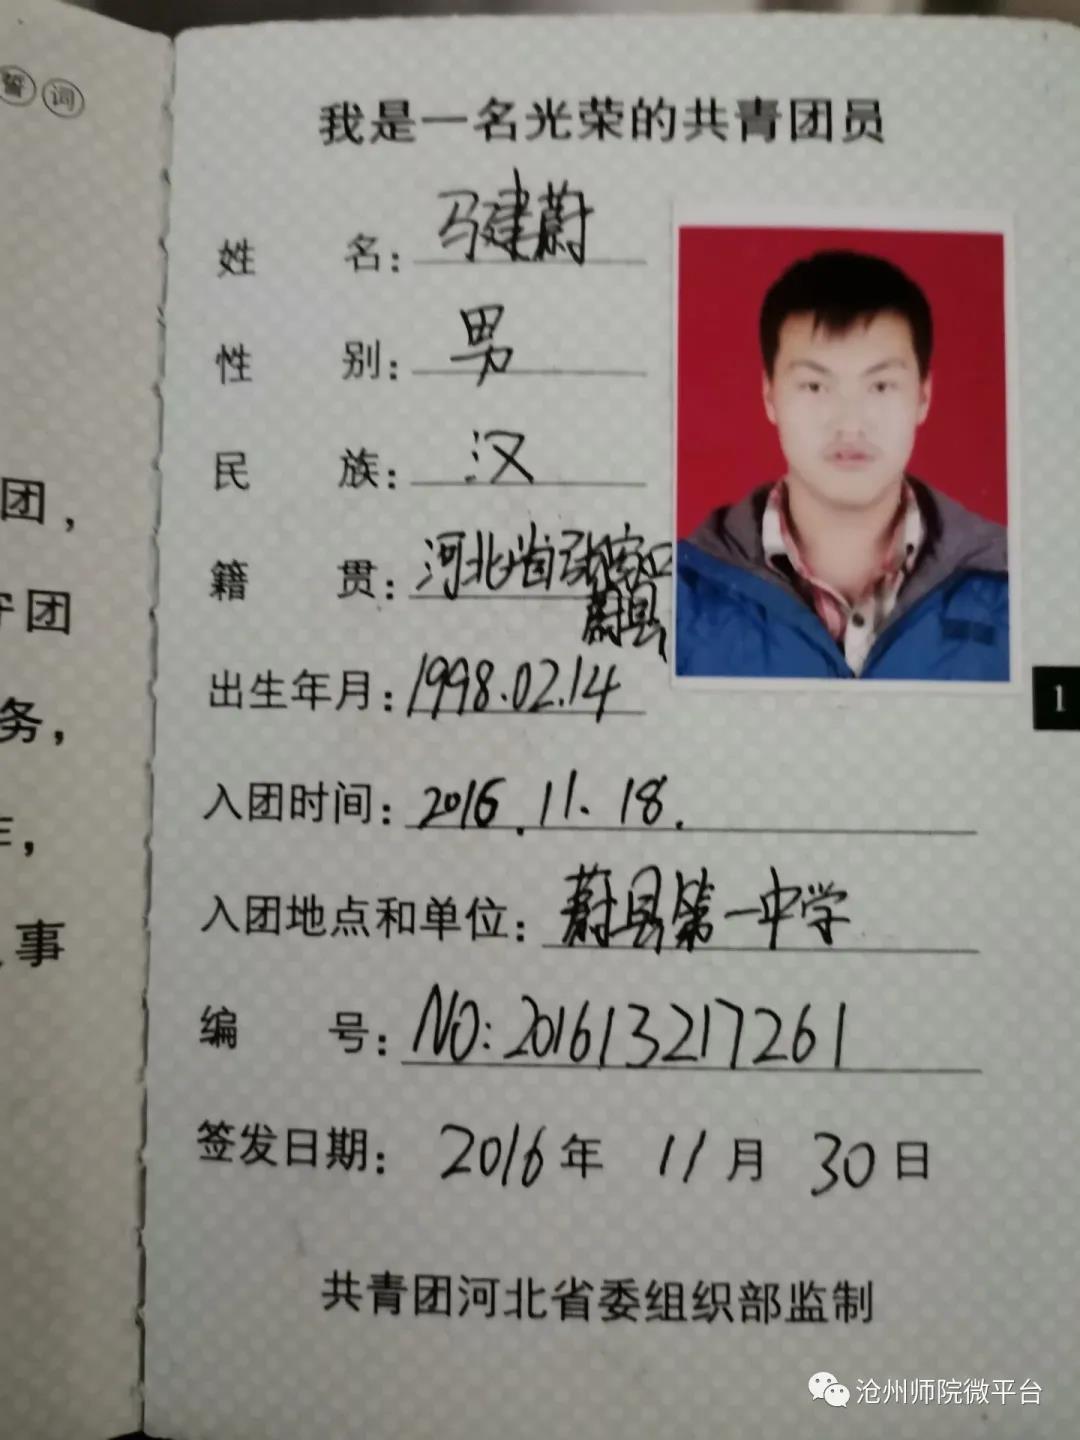 誓词
团，
守团
务，
事
我是一名光荣的共青团员
姓名：马建蔚
性别：男
民族：汉
籍贯：河北省张家口
蔚县
出生年月：1998.02.14
入团时间：2016.11.18.
入团地点和单位：蔚县第一中学
编号：NO：201613217261
签发日期：2016年11月30日
共青团河北省委组织部监制
1
沧州师院微平台